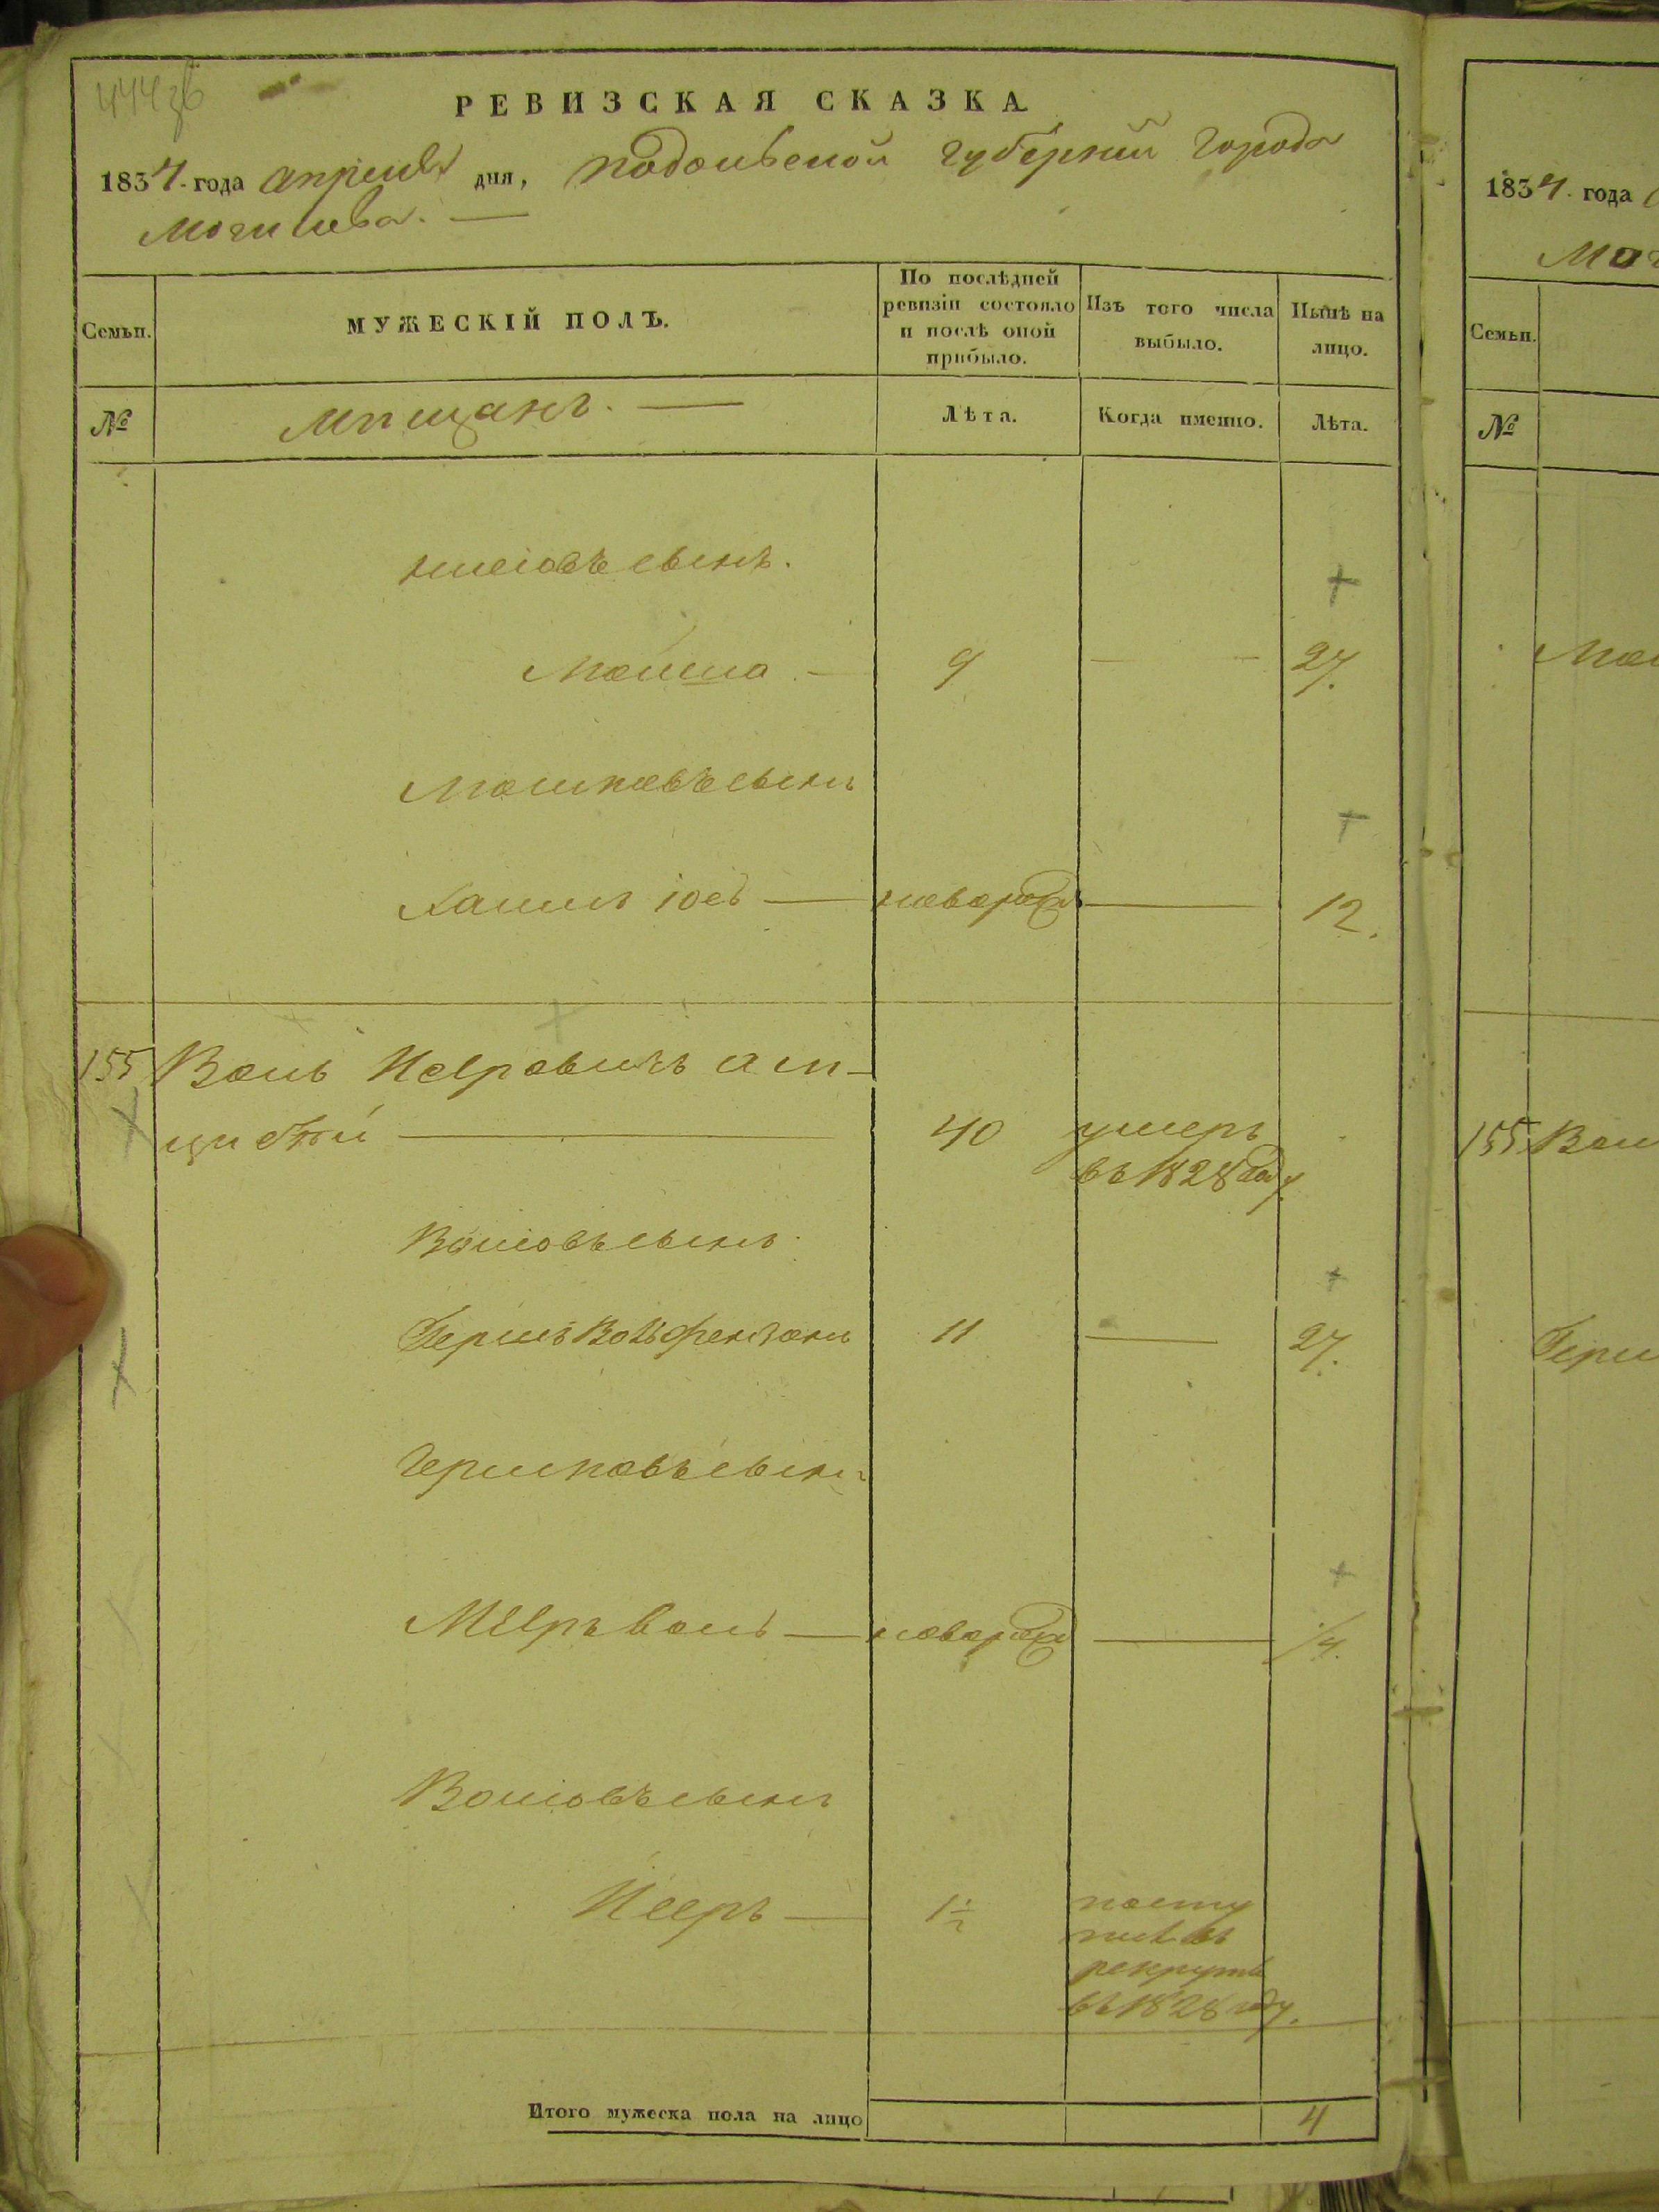 444 зв
РЕВИЗСКАЯ СКАЗКА
1834 года апреля дня, подольской губернии города
Могилева. —
Семьи.
МУЖЕСКІЙ ПОЛЪ.
По послѣдней ревизіи состояло и послѣ оной прибыло.
Изъ того числа выбыло.
Нынѣ на лицо.
№
Мѣщанъ. —
Лѣта.
Когда именно.
Лѣта.
сынъ.
Мошко — 9 — 27.
Мошковъ сынъ
Хаимъ Іос — новорож — 12.
155 Воль
40 умеръ
въ 1828 году
Волковъ сынъ
Гершъ Вольф 11 — 27.
Гершковъ сынъ
Меэръ Воль — новорож — 1/4.
Волковъ сынъ
Иееръ — 1 1/2 посту
пилъ въ
рекруты
въ 1828 году.
Итого мужеска пола на лицо 4
1834 года
№
Семьи.
155